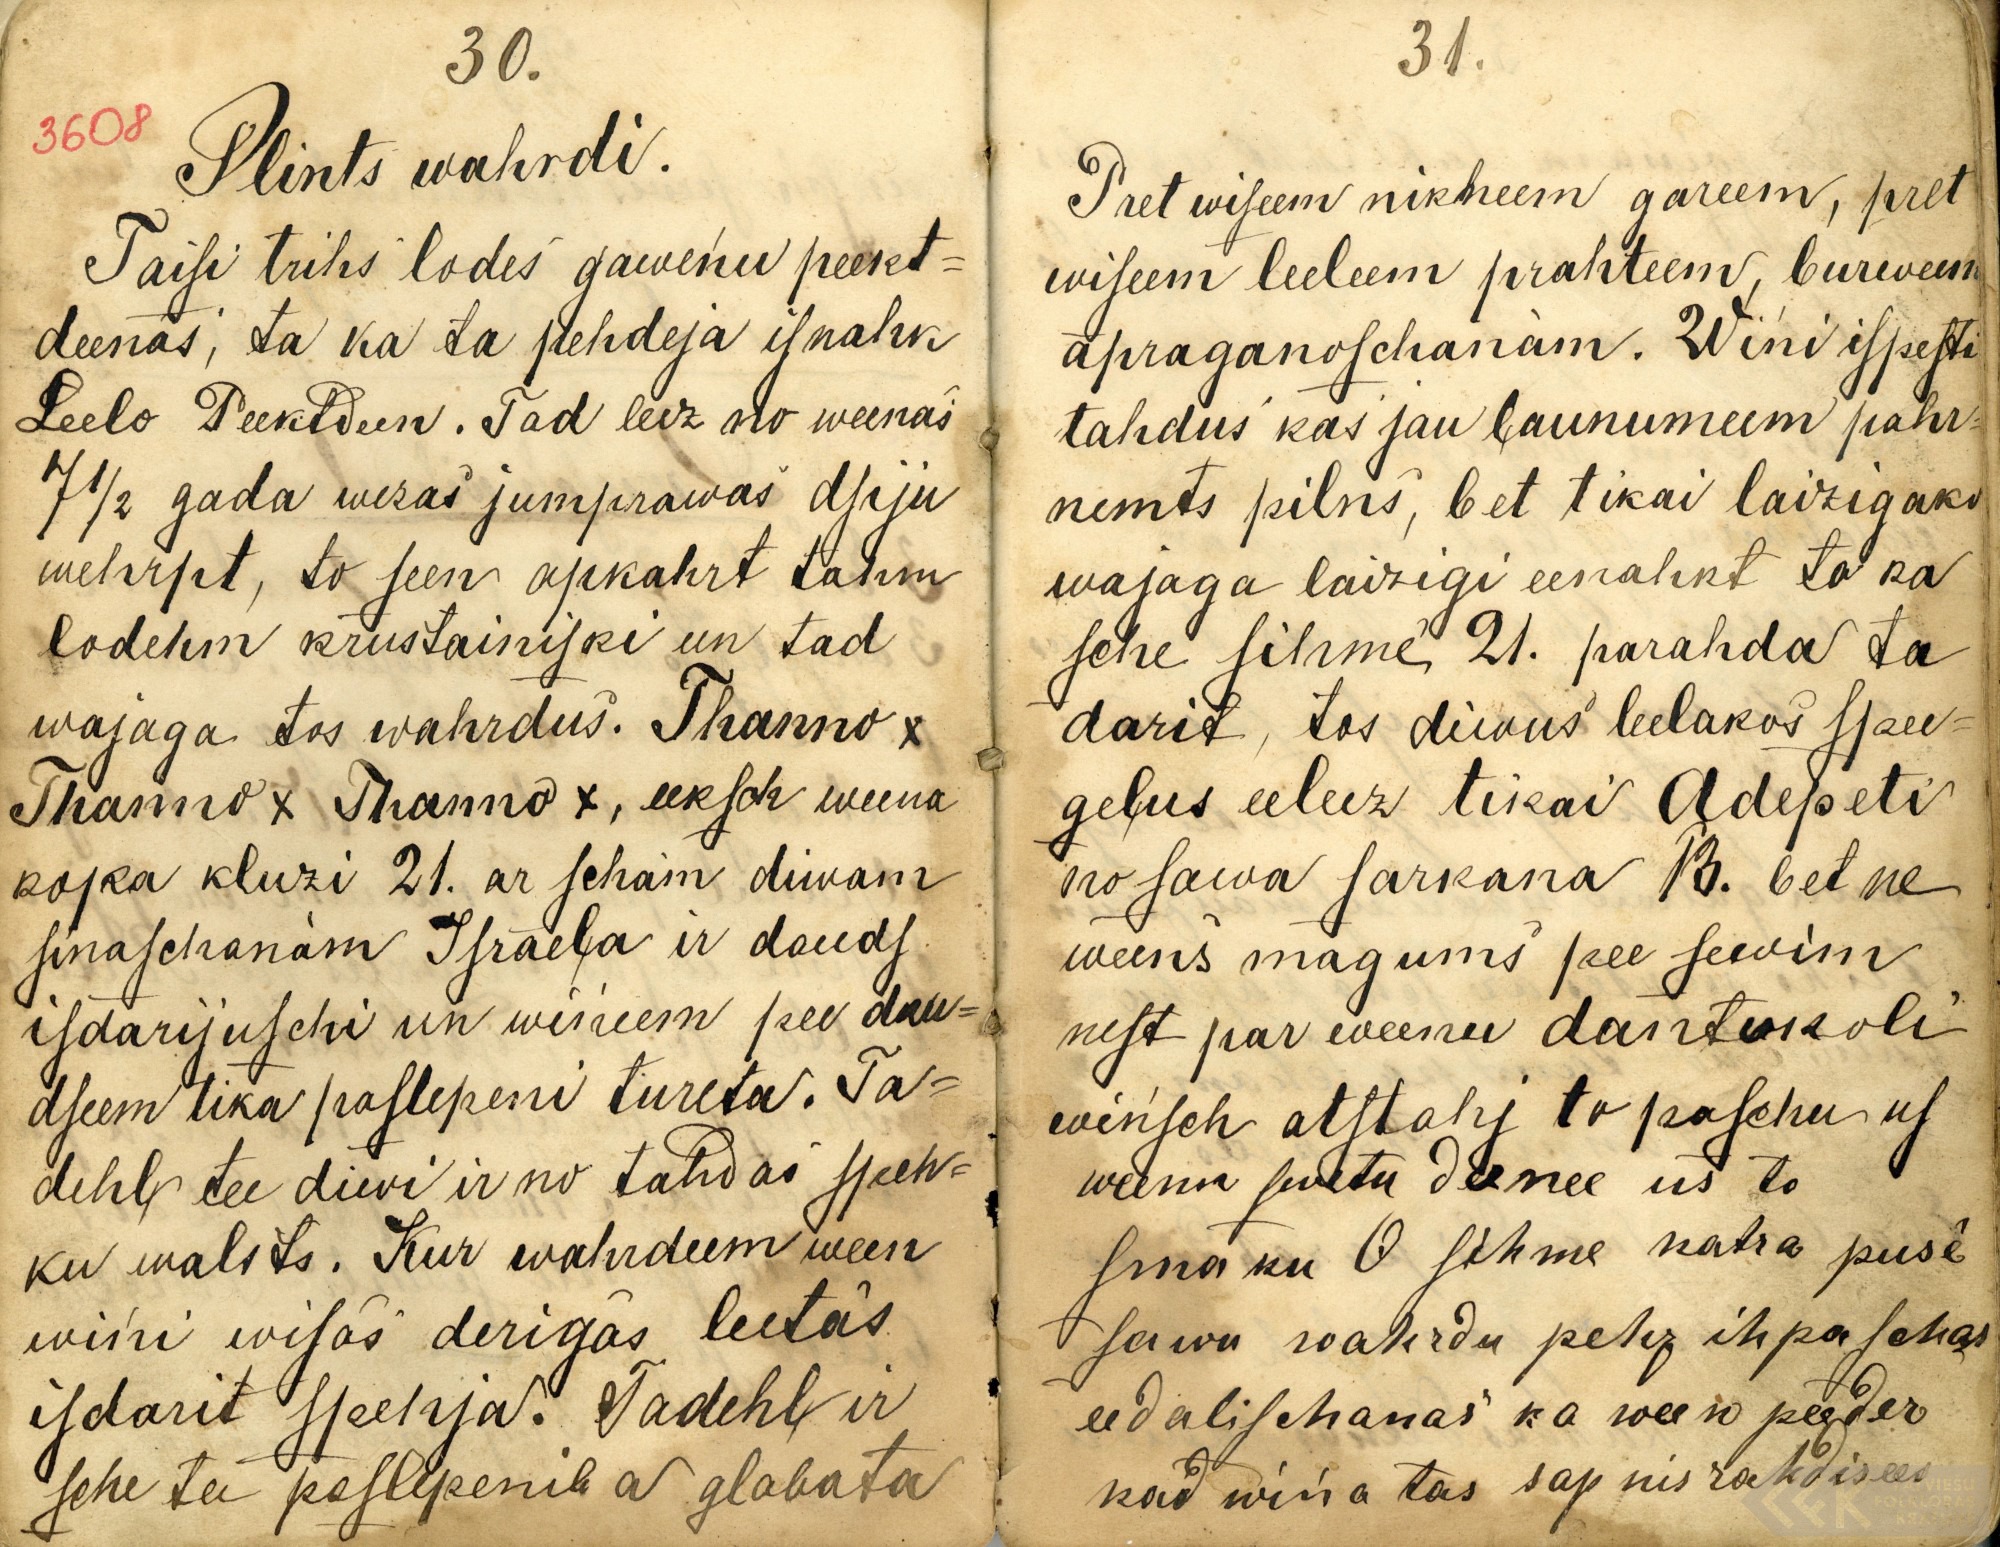 30.
3608
Plints wahrdi.
Taisi trihs lodes gawenu peekt=
deenas, ta ka ta pehdeja isnahk
Leelo Peektdeen. Tad leez no weenas
7½ gada wezas jumprawas dsiju
wehrpt, to seen apkahrt tahm
lodehm krustainiski un tad
wajaga tos wahrdus. Thanno x
Thanno x Thanno x, eeksch weena
koka kluzi 21. ar scham diwam
sinaschanam Israeļa ir dauds
isdarijuschi un wiņeem pee dau=
dseem tika paslepeni tureta. Ta=
dehļ tee diewi ir no tahdas speh=
ku walsts. Kur wahrdeem ween
wiņi wisas derigas leetas
isdarit spehja. Tadehļ ir
sche tee paslepeniba glabata
31.
Pret wiseem nikneem gareem, pret
wiseem leeleem prahteem, burweem
apraganoschanam. Wiņi ispesti
tahdus kas jau ļaunumeem pahr=
nemts pilns, bet tikai laizigako
wajaga laizigi eenahkt ta ka
sche sihme 21. parahda ta
darit, tos diwus leelakos spee=
geļus eeleez tikai Adepeti
no sawa sarkana B. bet ne
weens magums pee sewim
nest par weenu dantokoli
winsch atstahj to paschu us
weenu swetu deenee us to
smaku O sihme katra puse
sawu wahrdu pehz ihpaschas
eedalischanas ka ween peeder
kad wiņa tas sapnis rahdisees